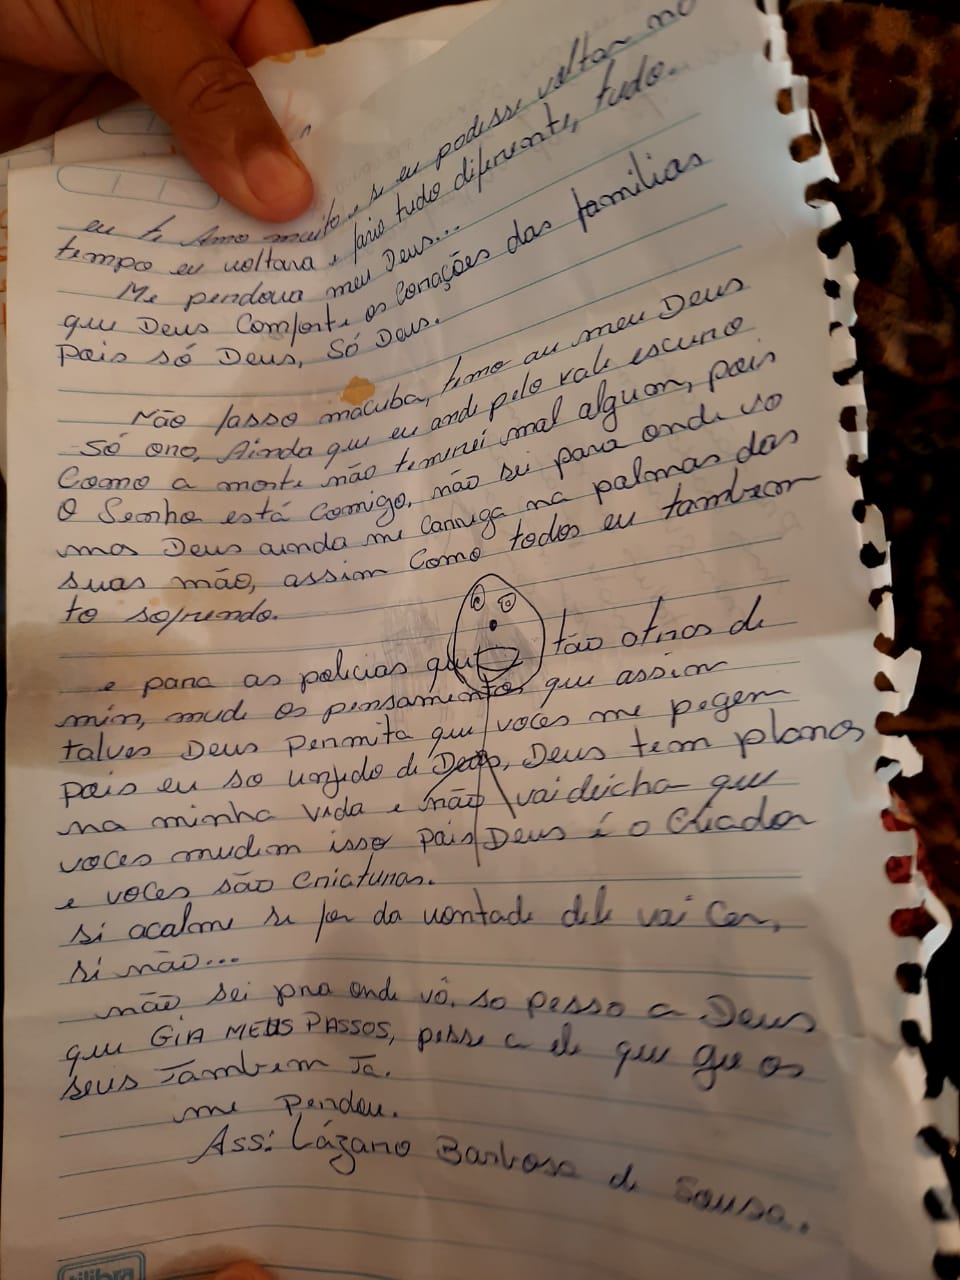 eu te Amo muito, e si eu podesse voltar no
tempo eu voltara e faria tudo diferente, tudo.
Me perdoua meu Deus...
que Deus Comforte os Corações das familias
pois só Deus, Só Deus.
Não fasso macuba, temo au meu Deus
Só oro, Ainda que eu ande pelo vale escuro
Como a morte não temerei mal algum, pois
O Senho está Comigo, não sei para onde vo
mas Deus ainda me Carrega na palmas das
suas mão, assim Como todos eu tambem
to sofrendo.
e para as policias que tão atras de
min, mude os pensamentos que assim
talves Deus Permita que voces me pegem
pois eu so unjido de Deus, Deus tem planos
na minha vida e não vai deicha que
voces mudem isso pois Deus é o Criador
e voces são Criaturas.
si acalme se for da vontade dele vai Cer,
si não...
não sei pra onde vô. so pesso a Deus
que GIA MEUS PASSOS, pesse a ele que gie os
seus Tambem Ta.
me Perdou.
Ass: Lázaro Barbosa de Sousa.
tilibra